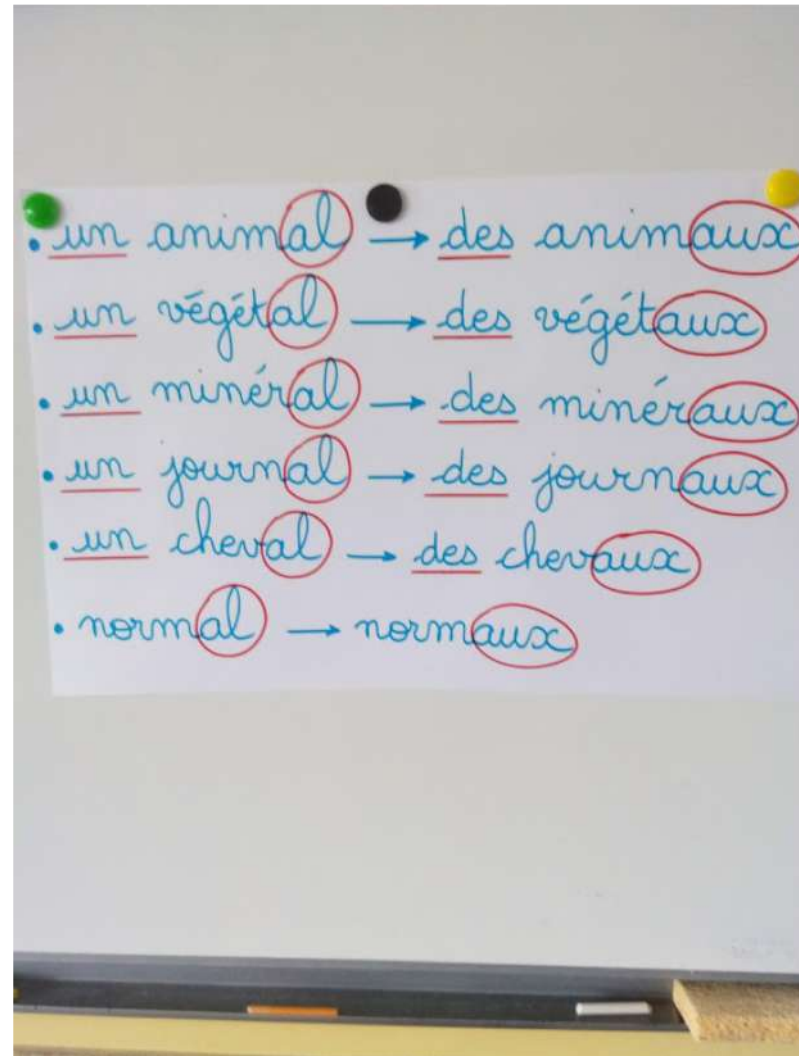 • un animal → des animaux
• un végétal → des végétaux
• un minéral → des minéraux
• un journal → des journaux
• un cheval → des chevaux
• normal → normaux